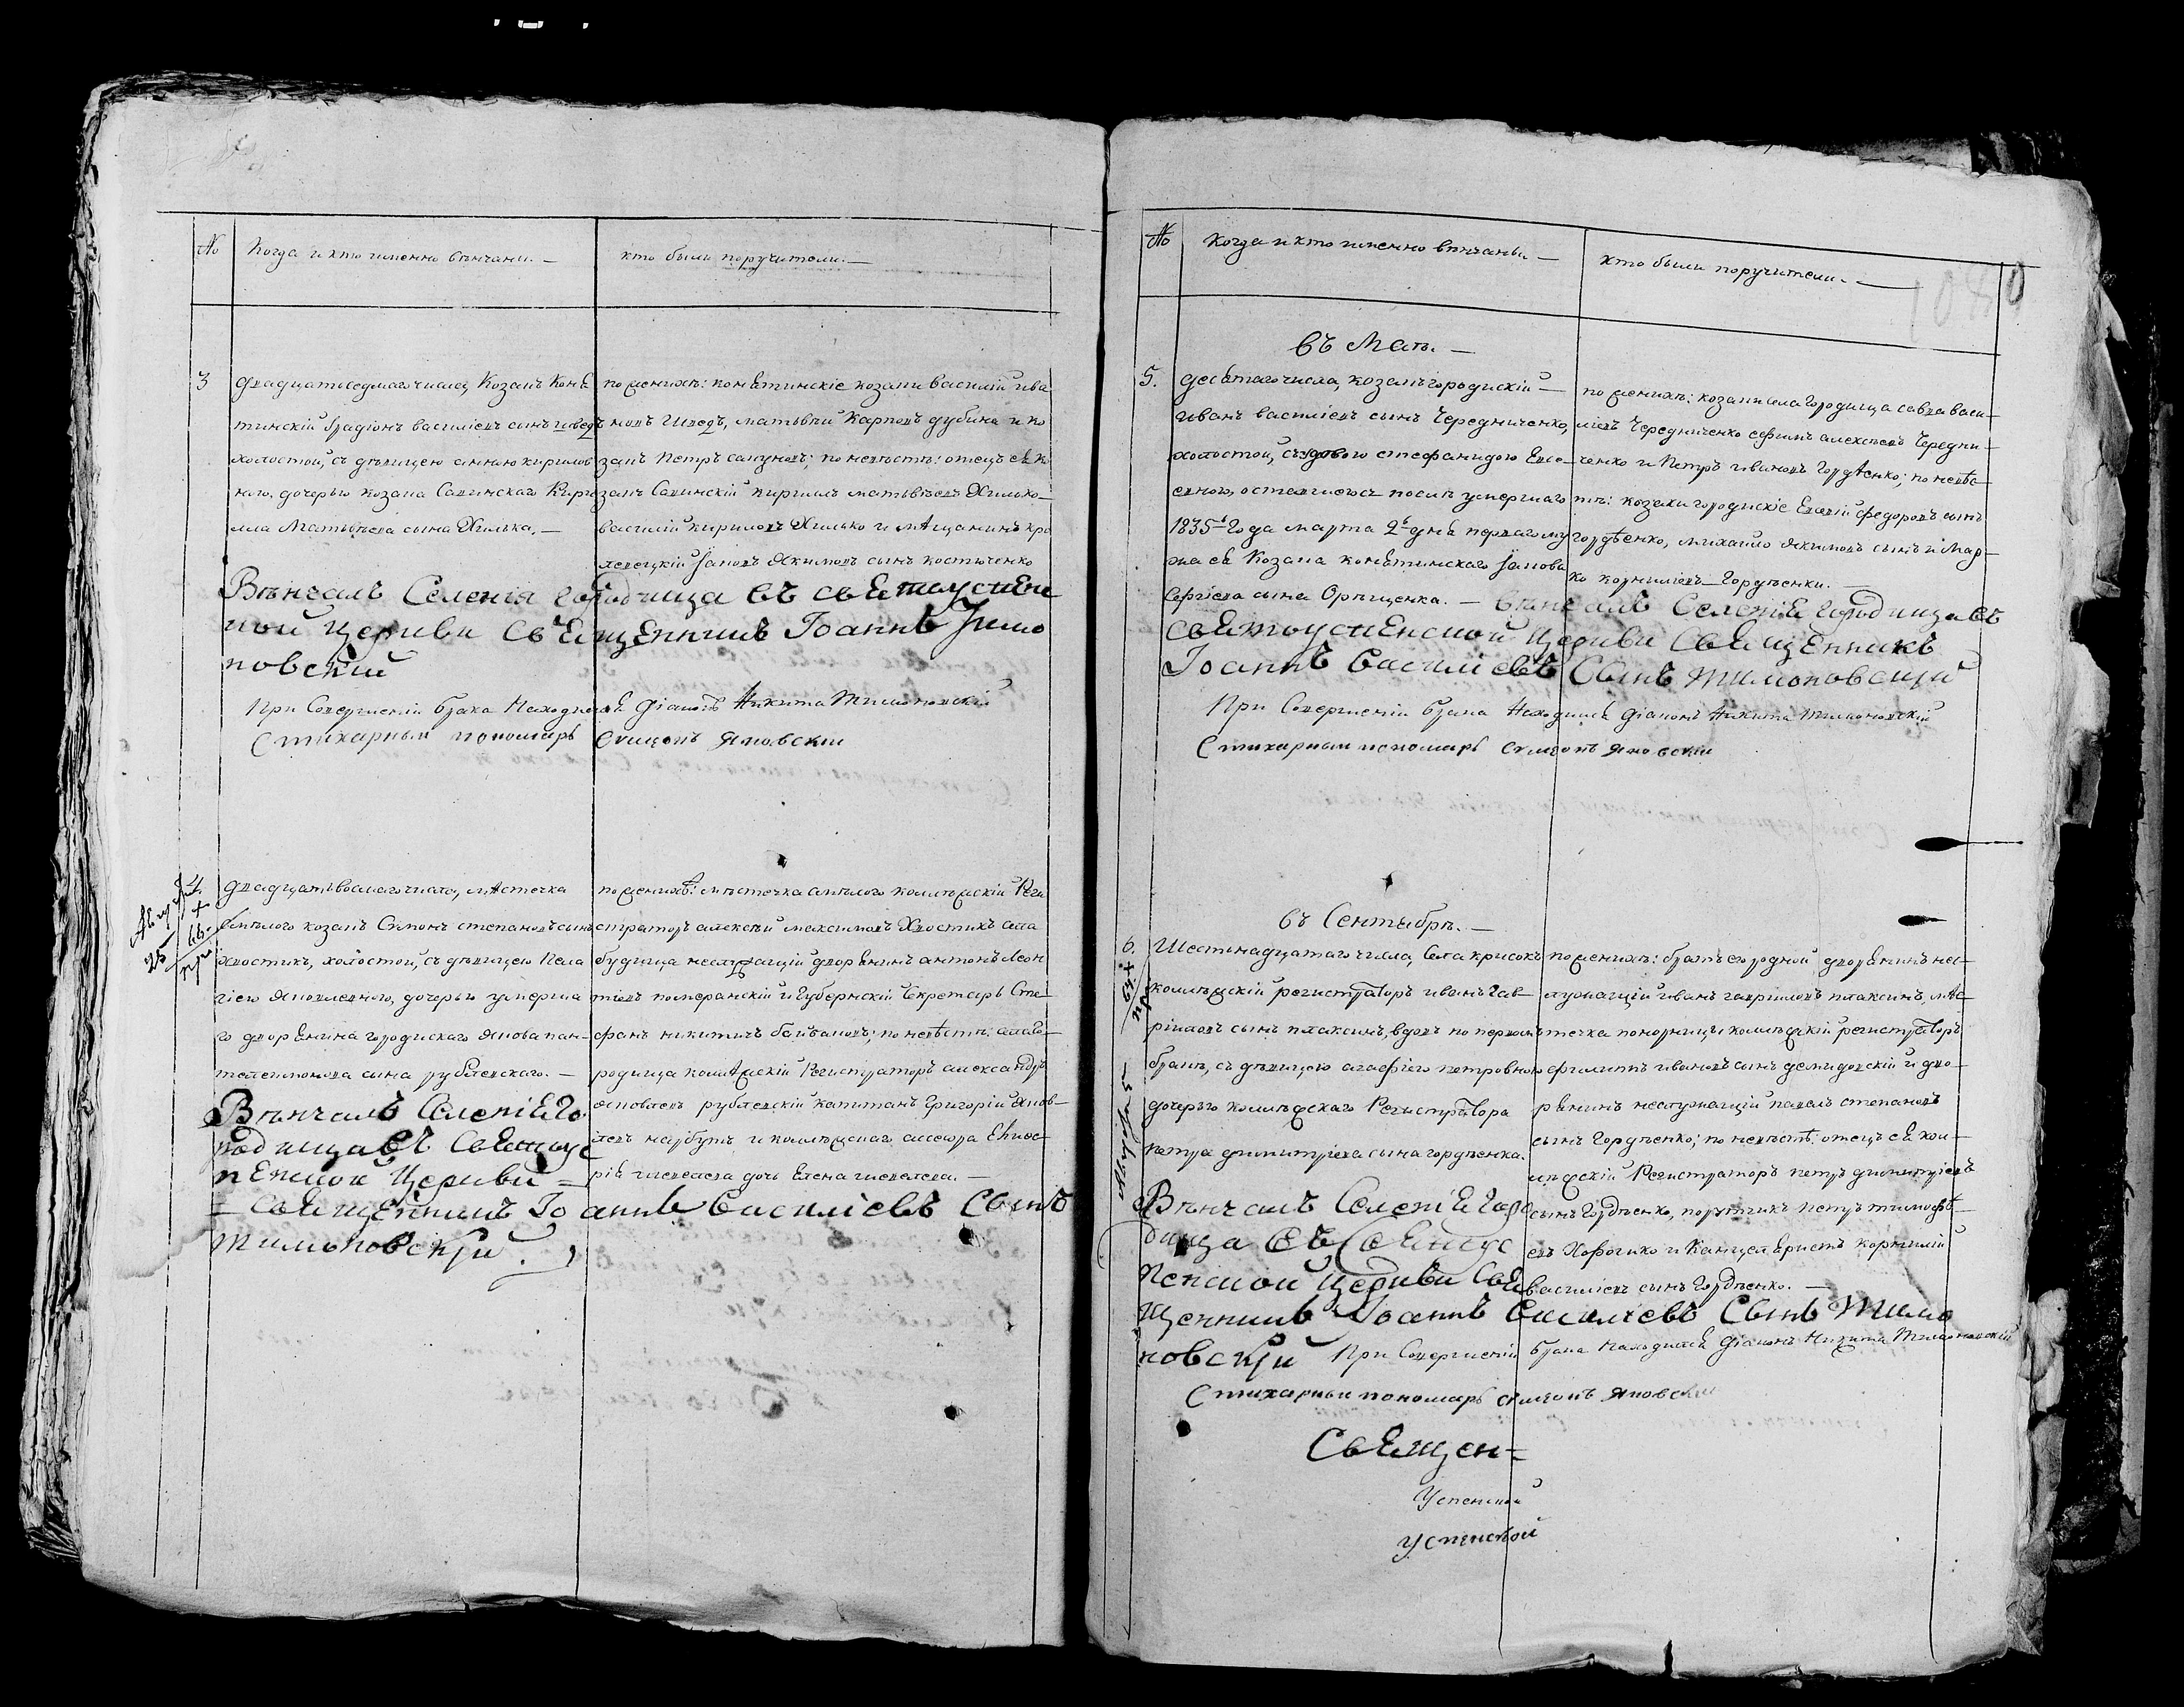 № Когда и кто именно вѣнчани. —
кто были поручители. —
3
двадцатьседмаго числа, Козакъ Коня
тинскій Градіонъ василіевъ сынъ шведъ
холостой, съ дѣвицею анною кирилов
ною, дочерью козака Савинскаго Кири
ла Матвѣева сына Хилька. —
по женихѣ: конятинскіе козаки василій ива
новъ Шведъ, матвѣй Карповъ дубина и ко
закъ Петръ сапуновъ; по невѣстѣ: отецъ ея ко
закъ Савинскій кирилъ матвѣевъ Хилько
василій кириловъ Хилько и мѣщанинъ кро
левецкій Яковъ Якимовъ сынъ костюченко
Вѣнчалъ Селенія городища въ святоуспен
ской церкви Священникъ Іоаннъ Тимо
новскій
При Совершеніи брака Находился діаконъ Никита Тимоновскій
Стихарный пономарь Симеонъ Яновскій
4.
двадцатьвосмаго числа, мѣстечка
Смѣлого козакъ Симонъ степановъ сынъ
Хвостикъ, холостой, съ дѣвицею Пела
гіею Яковлевною, дочерью умерша
го дворянина городискаго Якова пан
телеимонова сына рублевскаго. —
по женихѣ: мѣстечка смѣлого коллежскій Реги
страторъ алексѣй максимовъ Хвостикъ села
будища неслужащій дворянинъ антонъ Леон
тіевъ померанскій и Губернскій Секретарь Сте
фанъ никитичъ ; по невѣстѣ: села го
родища коллежскій Регистраторъ александръ
яковлевъ рублевскій капитанъ Григорій яков
левъ марбутъ и коллежскаго ассесора
дочь Елена
Вѣнчалъ Селеніе Го
родища въ Святоус
пенской Церкви —
— Священникъ Іоаннъ Василіевъ Сынъ
Тимоновскій.
№ Когда и кто именно вѣнчаны. —
кто были поручители. —
въ Маѣ. —
5.
десятаго числа, козакъ городискій —
иванъ василіевъ сынъ Чередниченко,
холостой, съ вдовою стефанидою Евсе-
евною, оставшеюся послѣ умершаго
1835го года марта 2го дня перваго му
жа ея Козака конятинскаго Якова
Сергіева сына Орѣщенка. —
по женихѣ: козаки села Городища савва васи-
ліевъ Чередниченко ефимъ алексѣевъ Чередни-
ченко и Петръ ивановъ Гордѣенко; по невѣс
тѣ: козаки городискіе Евсевій федоровъ сынъ
гордѣенко, михайло якимовъ сынъ и Мар-
ко корниліевъ — Гордѣенки. —
вѣнчалъ Селеніе Городища въ
Святоуспенской церкви Священникъ
Іоаннъ Василіевъ Сынъ Тимоновскій
При Совершеніи брака Находился діаконъ Никита Тимоновскій
Стихарный пономарь Симеонъ Яновскій
въ Сентябрѣ. —
6.
Шестьнадцатаго числа, Села крисокъ
коллежскій регистраторъ иванъ Гав-
риловъ сынъ плаксинъ, вдовъ по первомъ
бракѣ, съ дѣвицею агафіею петровною
дочерью коллежскаго Регистратора
петра димитріева сына гордѣенка.
по женихѣ: братъ его родной дворянинъ не-
служащій иванъ гавриловъ плаксинъ, мѣс
течка понорницы коллежскій регистраторъ
филиппъ ивановъ сынъ демидовскій и дво-
рянинъ неслужащій павелъ степановъ
сынъ Гордѣенко; по невѣстѣ: отецъ ея кол-
лежскій Регистраторъ петръ димитріевъ
сынъ Гордѣенко, поручикъ петръ тимофѣ-
евъ и Канцеляристъ корнилій
василіевъ сынъ Гордѣенко. —
Вѣнчалъ Селеніе Горо
дища въ Святоус
пенской Церкви Свя
щенникъ Іоаннъ Василіевъ Сынъ Тимо
новскій При Совершеніи брака Находился діаконъ Никита Тимоновскій
Стихарный пономарь Симеонъ Яновскій
Священ-
Успенской
Успенской